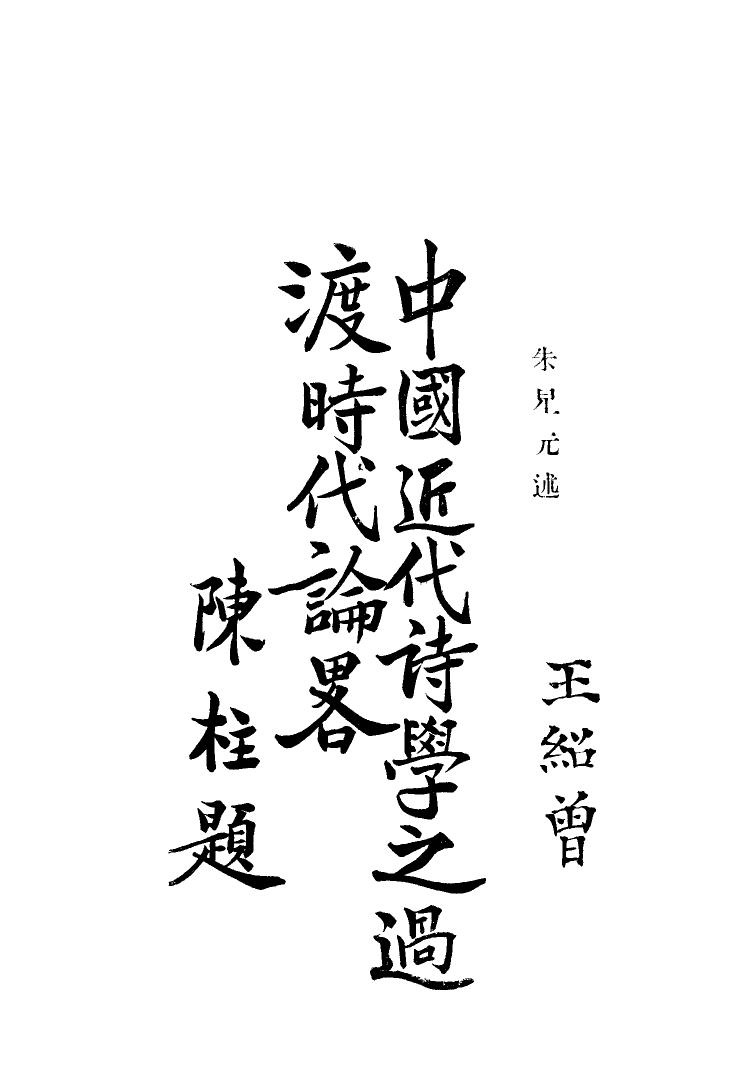 朱星元述
王紹曾
中國近代詩學之過
渡時代論畧
陳柱題